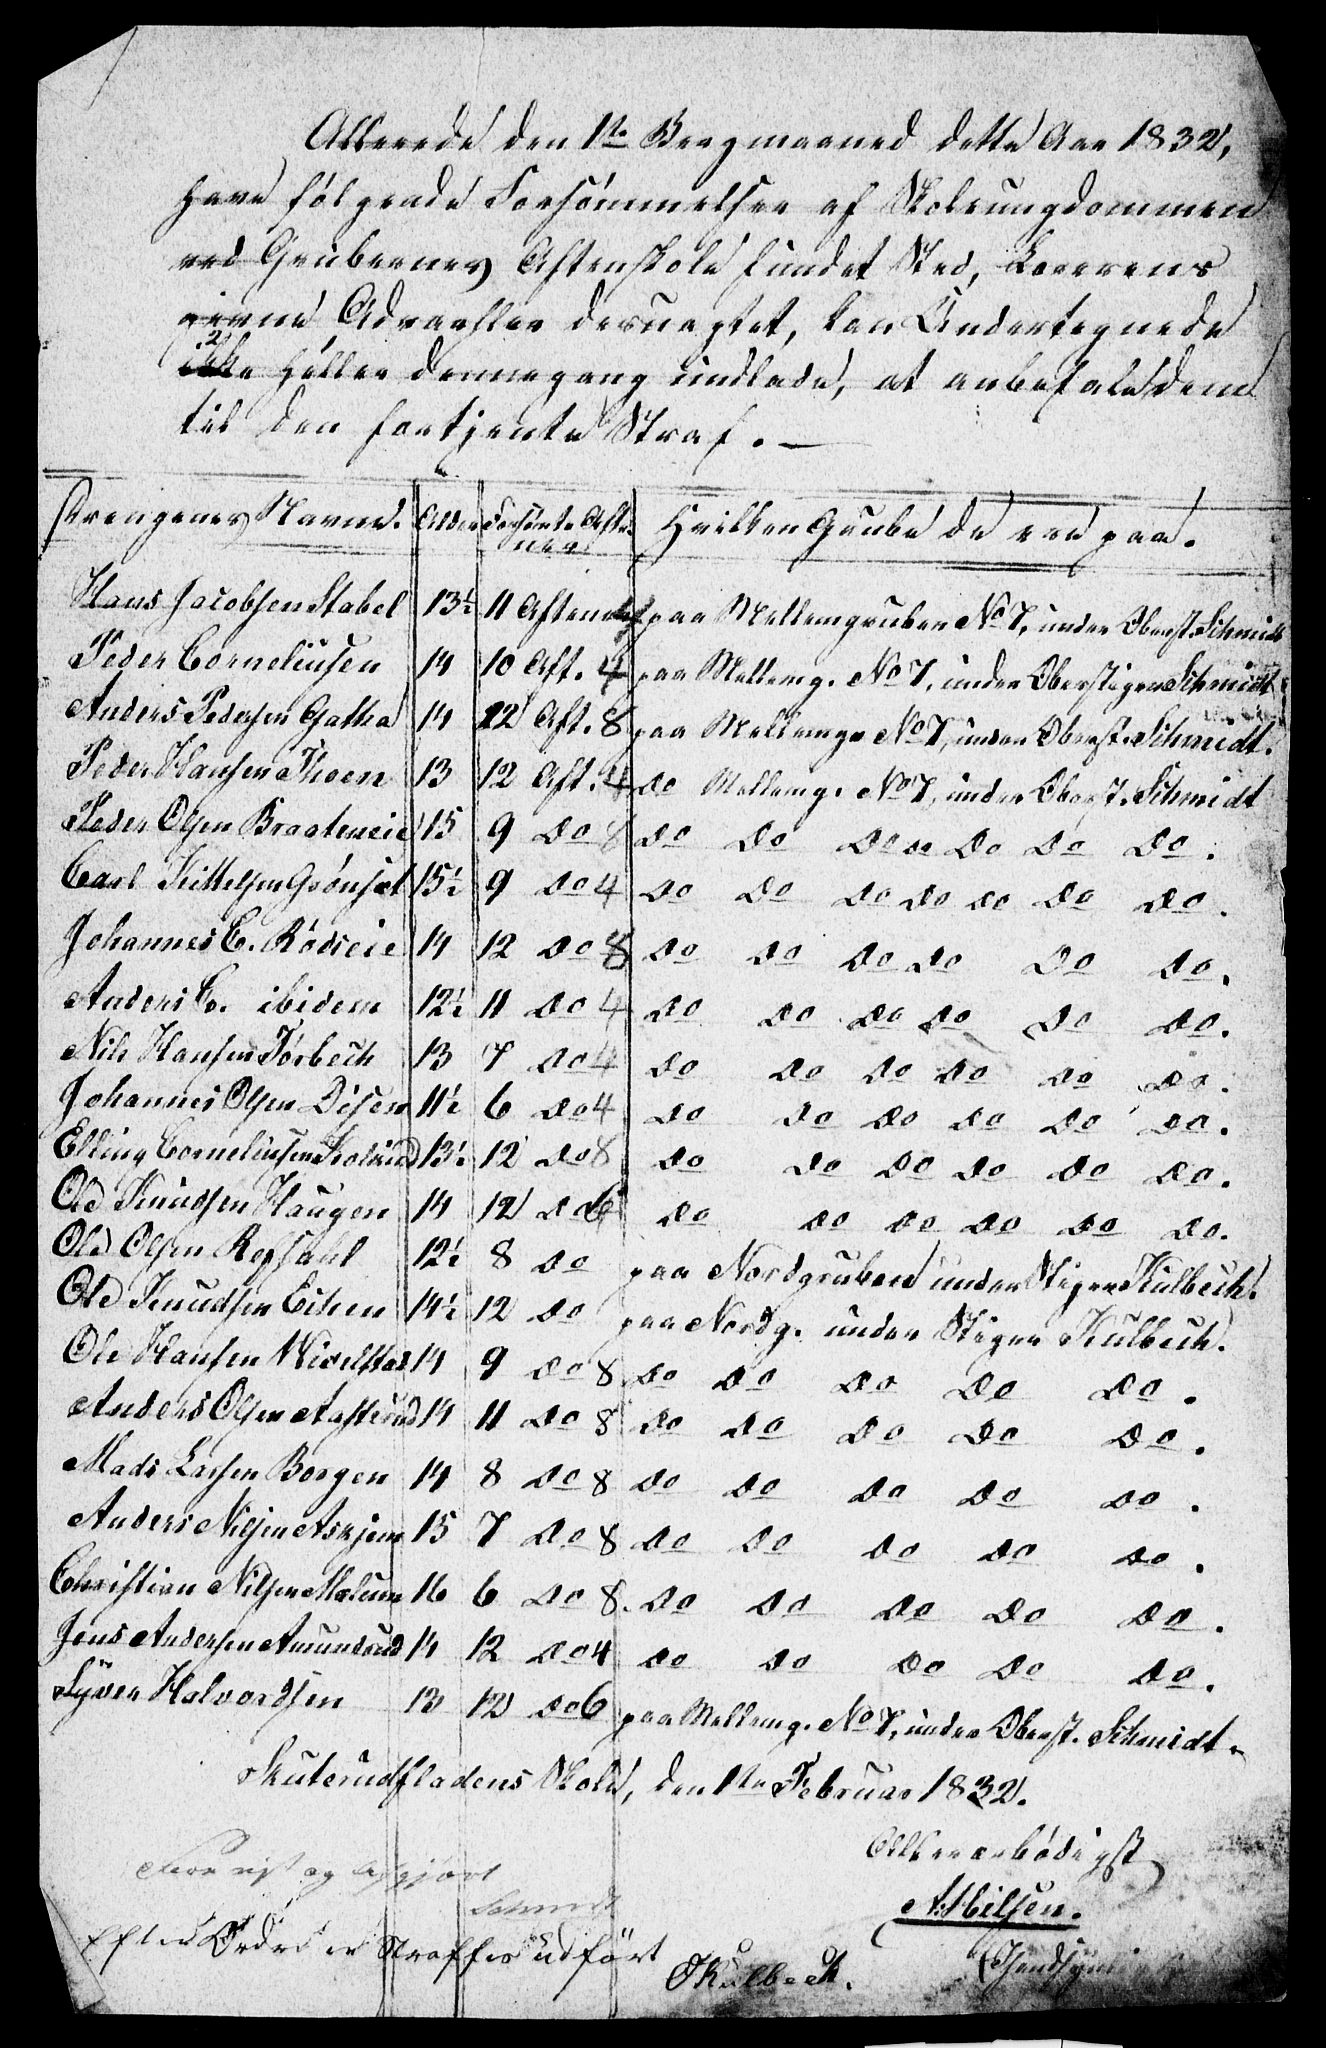 Allerede den 1te Bergmaaned dette Aar 1832,
have følgende Forsømmelser af Skoleungdommen
ved Grubernes Aftenskole fundet Sted, Lærerens
givne Advarsler desuagtet, kan Undertegnede
ikke heller dennegang undlade, at anbefale dem
til den fortjente Straf. —
Drengenes Navne. Alder Forsømte Aftener Hvilken Grube de ere paa.
Hans Jacobsen Stabel 13½ 11 Aftener paa Mellemgruben No 7, under Oberst. Schmidt
Peder Corneliusen 14 10 Aft. 4 paa Mellemg. No 7, under Oberstiger Schmidt
Anders Pedersen Gatha 14 12 Aft. 8 paa Mellemg. No 7, under Oberst. Schmidt.
Peder Hansen Thoen 13 12 Aft. 4 do Mellemg. No 7, under Oberst. Schmidt
Peder Olsen Braateneie 15 9 do 8 do do do do do do do.
Carl Kittelsen Grønset 15½ 9 do 4 do do do do do do do.
Johannes C. Rødseie 14 12 do 8 do do do do do do.
Anders C. ibidem 12½ 11 do 4 do do do do do do.
Nils Hansen Tørbech 13 7 do 4 do do do do do do.
Johannes Olsen Disen 11½ 6 do 4 do do do do do do.
Elling Corneliusen 13½ 12 do 8 do do do do do do.
Ole Knudsen Haugen 14 12 do 6 do do do do do do.
Ole Olsen Refsahl 12½ 8 do paa Nordgruben under Stiger Kulbech.
Ole Knudsen Eiken 14½ 12 do paa Nordg. under Stiger Kulbech.
Ole Hansen 14 9 do 8 do do do do do.
Anders Olsen 14 11 do 8 do do do do do.
Mads Larsen Borgen 14 8 do 8 do do do do do.
Anders Nilsen Askjem 15 7 do 8 do do do do do.
Christian Nilsen Melum 16 6 do 8. do do do do do.
Jens Andersen Amundsrud 14 12 do 4 do do do do do.
Syver Halvordsen 13 12 do 6 paa Mellemg. No 7, under Oberst. Schmidt.
Skuterudfladens Skole, den 1te Februar 1832.
Allerærbødigst
A: Nilsen.
og afgjort
Schmidt
Efter Ordre er Straffen udført
OKulbeck.